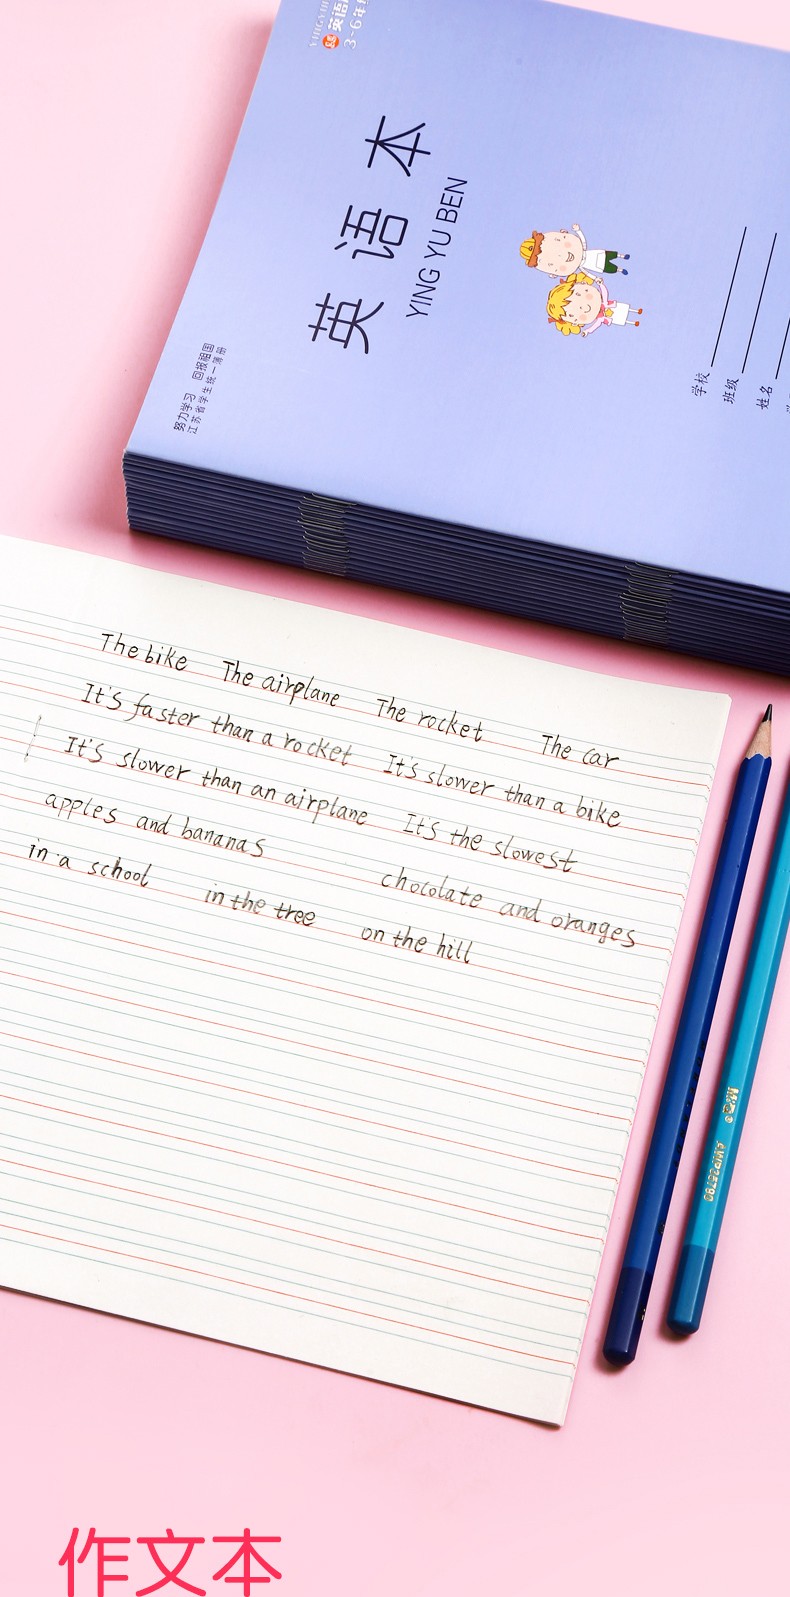 英语
3-6年级
英语本
YING YU BEN
努力学习 回报祖国
江苏省学生统一簿册
学校
班级
姓名
The bike The airplane The rocket The car
It's faster than a rocket It's slower than a bike
It's slower than an airplane It's the slowest
apples and bananas chocolate and oranges
in a school in the tree on the hill
M&G
作文本